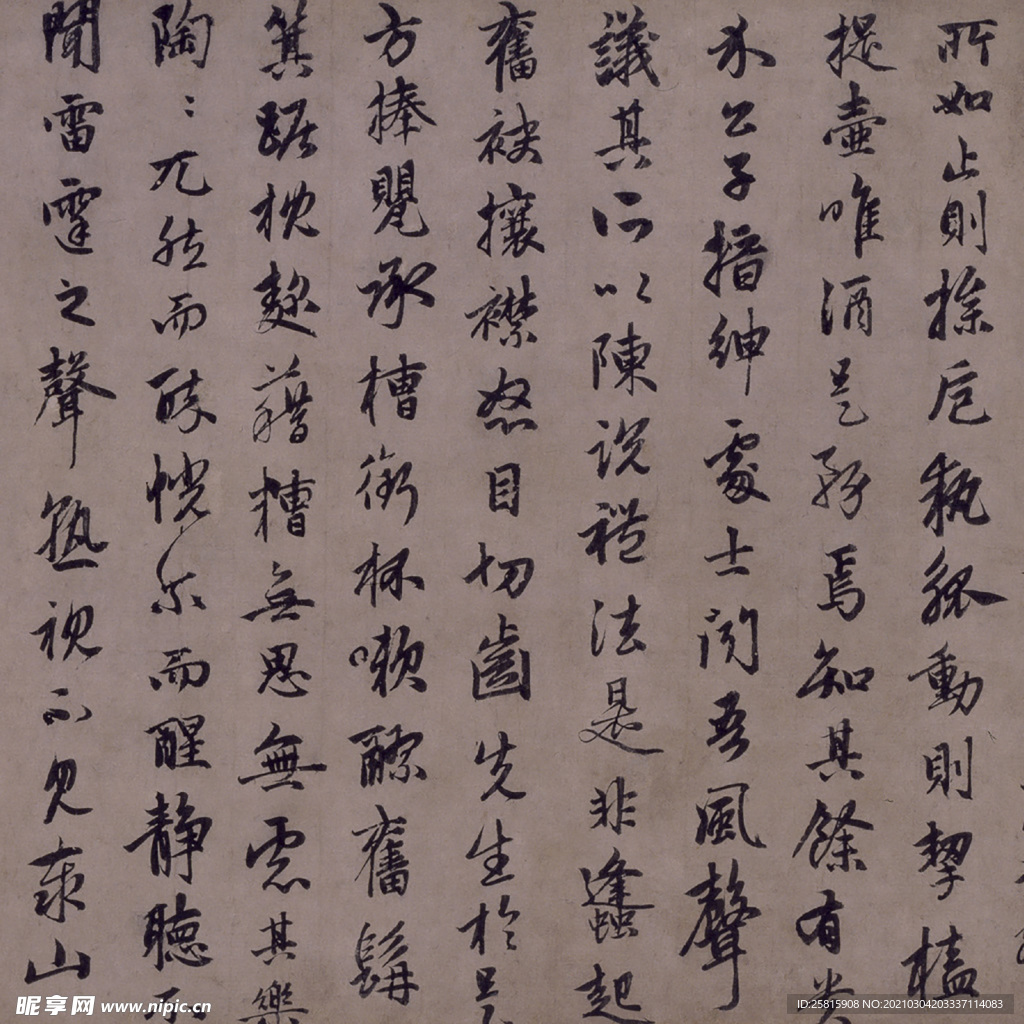 所如止則操卮執觚動則挈榼
提壺唯酒是務焉知其餘有貴
介公子搢紳處士聞吾風聲
議其所以陳說禮法是非蠭起
奮袂攘襟怒目切齒先生於是
方捧甖承槽銜杯嗽醪奮髯
箕踞枕麴藉糟無思無慮其樂
陶〻兀然而醉恍尔而醒靜聽不
聞雷霆之聲熟視不見泰山
昵享网 www.nipic.cn
ID:25815908 NO:20210304203337114083